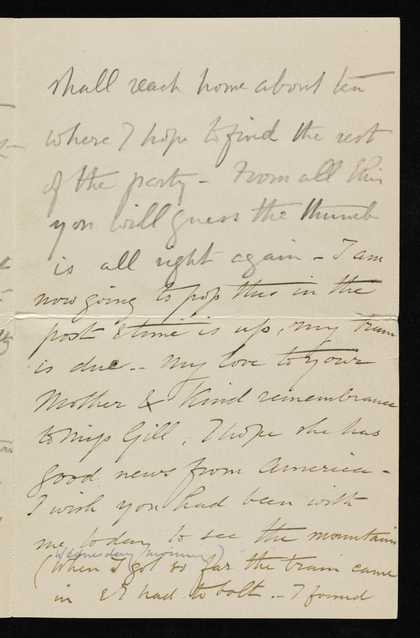 shall reach home about ten
where I hope to find the rest
of the party - From all this
you will guess the thumb
is all right again - I am
now going to pop this in the
post & time is up, my train
is due -- My love to your
Mother & Kind remembrance
to Miss Gill, I hope she has
good news from America -
I wish you had been with
me today to see the mountains
Wednesday morning)
(When I got so far the train came
in & I had to bolt -- I found